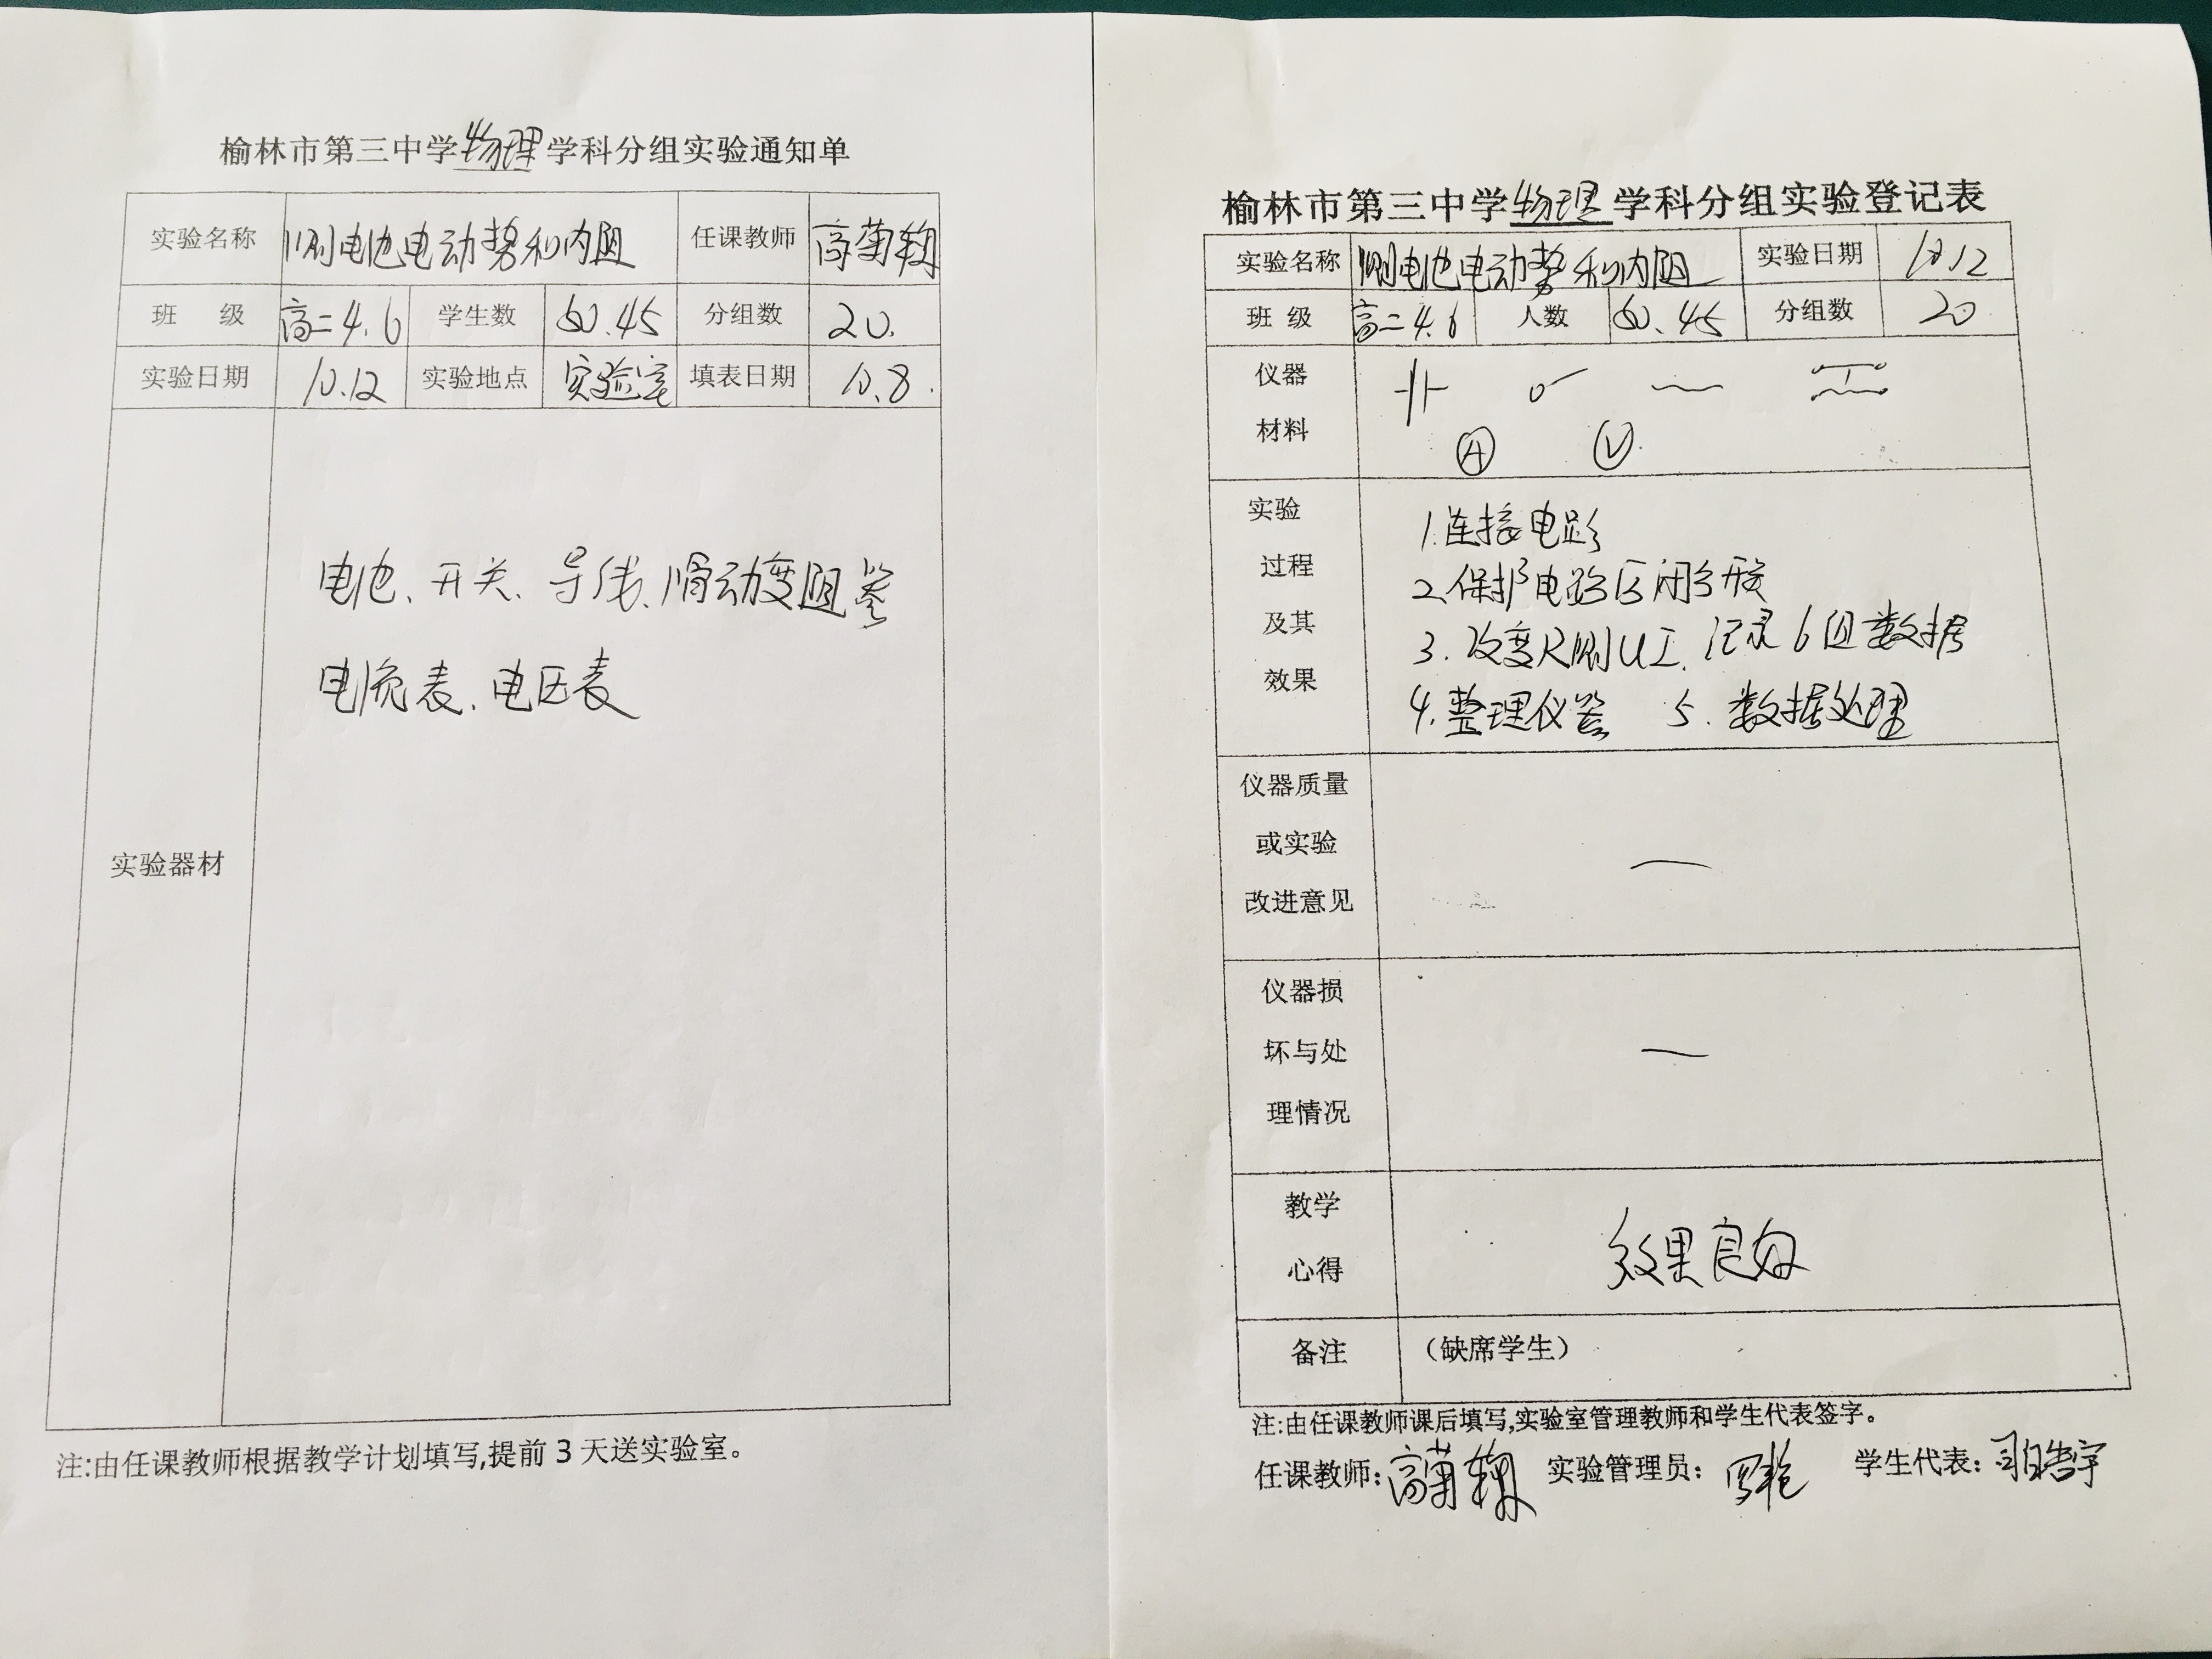 榆林市第三中学物理学科分组实验通知单
实验名称 测电池电动势和内阻 任课教师 高菊
班 级 高二4.6 学生数 50.45 分组数 20.
实验日期 10.12 实验地点 实验室 填表日期 10.8.
实验器材
电池、开关、导线、滑动变阻器
电流表、电压表
注:由任课教师根据教学计划填写,提前3天送实验室。
榆林市第三中学物理学科分组实验登记表
实验名称 测电池电动势和内阻 实验日期 10.12
班 级 高二4.6 人数 50.45 分组数 20
仪器
材料
A V
实验
过程
及其
效果
1.连接电路
2.保护电路后闭合开关
3.改变R测U I.记录6组数据
4.整理仪器 5.数据处理
仪器质量
或实验
改进意见
—
仪器损
坏与处
理情况
—
教学
心得
效果良好
备注 (缺席学生)
注:由任课教师课后填写,实验室管理教师和学生代表签字。
任课教师:高菊 实验管理员:罗艳 学生代表:浩宇